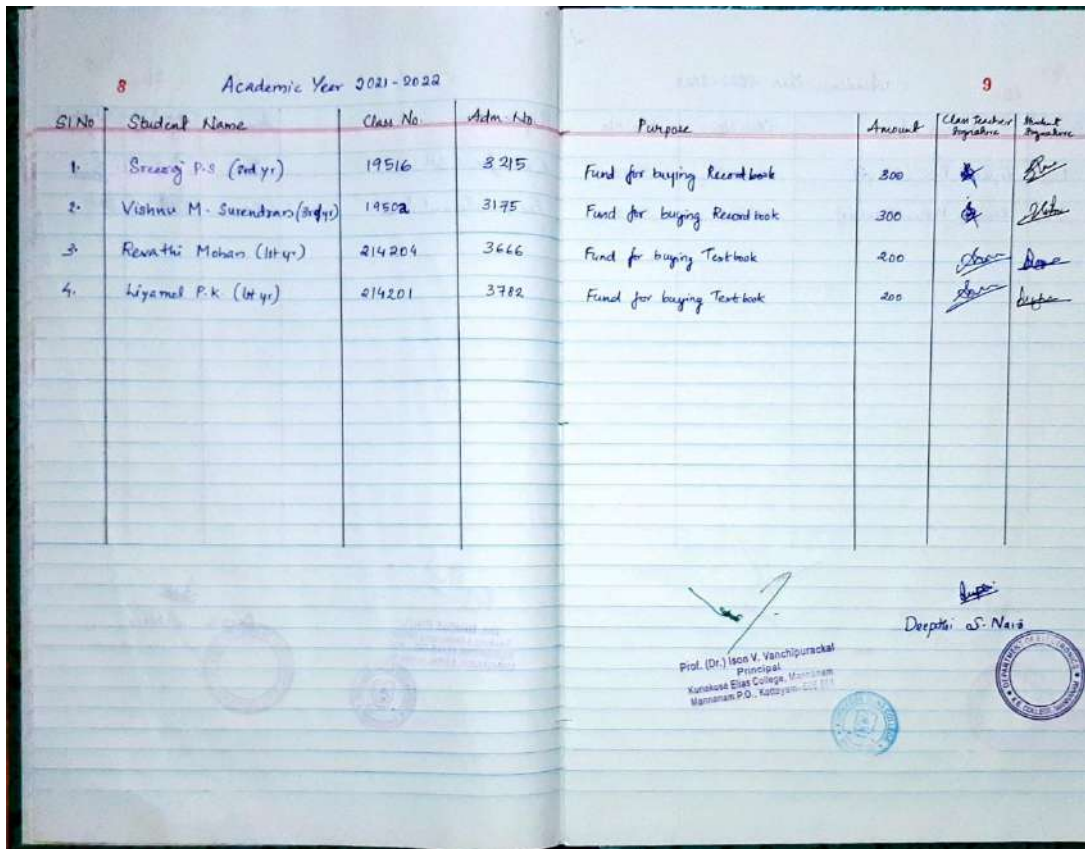 8
Academic Year 2021-2022
9
Sl.No Student Name Class No. Adm. No. Purpose Amount Class Teacher Signature Student Signature
1. Sreeraj P.S (3rd yr) 19516 3215 Fund for buying Record book 300
2. Vishnu M. Surendran (3rd yr) 19502 3175 Fund for buying Record book 300
3. Revathi Mohan (1st yr) 214204 3666 Fund for buying Textbook 200
4. Liyamol P.K (1st yr) 214201 3782 Fund for buying Textbook 200
Deepthi S. Nair
Prof. (Dr.) Ison V. Vanchipurackal
Principal
Kuriakose Elias College, Mannanam
Mannanam P.O., Kottayam
DEPARTMENT OF ELECTRONICS
K.E. COLLEGE, MANNANAM